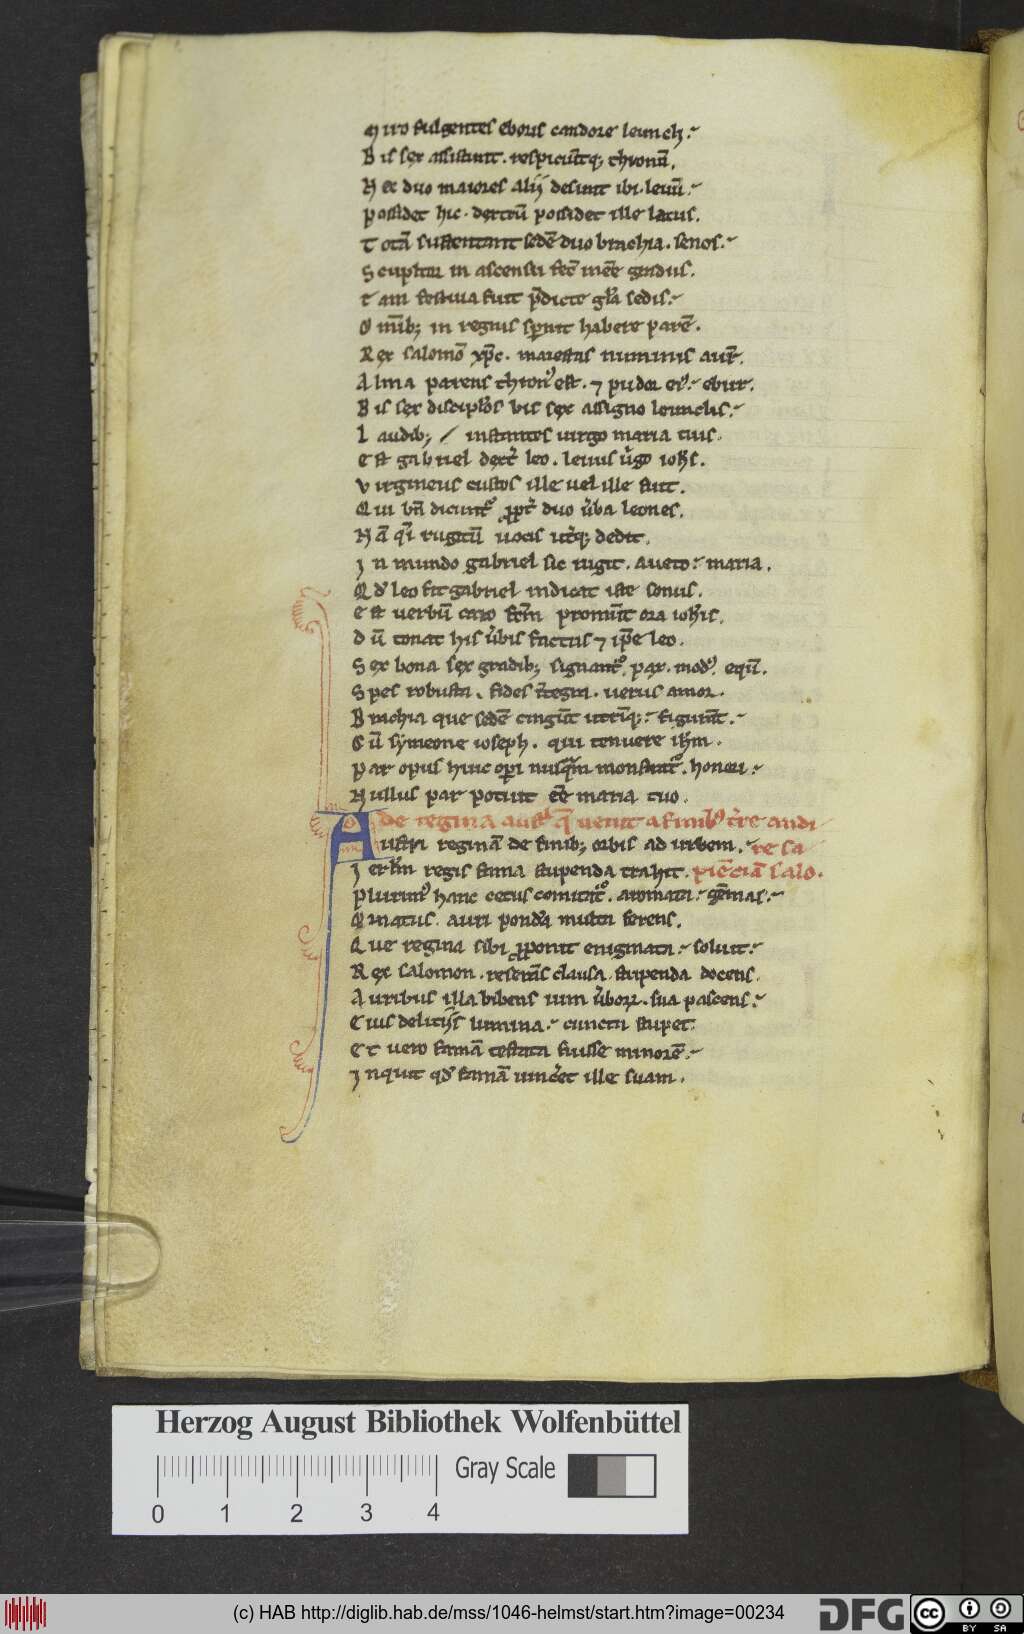 Miro fulgentes eboris candore leuncli.
Bis sex assistunt. respiciūtq; thronū.
Nec duo maiores alij desunt ibi. leuū.
Possidet hic. dextrū possidet ille latus.
Totā sustentant sedē duo brachia. senos.
Sculptor in ascensu fec̄ inēē gradus.
Tam festiua fuit p̄dicte gl̄a sedis.
Om̄ib; in regnis sp̄nit habere parē.
Rex salomō xp̄c. maiestas numinis aur̄.
Alma parens thron⁹ est. ⁊ pudor ei⁹. ebur.
Bis sex discipl̄os bis sex assigno leunclis.
Laudib; instantes uirgo maria tuis.
Est gabriel dext̄ leo. leuus ůgo ioh̄s.
Virgineus custos ille uel ille fuit.
Qui bn̄ dicunt̄ ꝓpt̄ duo ůba leones.
Nā q̄i rugitū uocis ut̄q; dedit.
In mundo gabriel sic rugit. aueto. maria.
Qđ leo sit gabriel indicat iste sonus.
Est uerbū caro fc̄m promūt ora ioh̄is.
Dū tonat his ůbis factus ⁊ ip̄e leo.
Sex bona sex gradib; signant̄. pax. mod⁹. equū.
Spes robusta. fides īteg̃ra. uerus amor.
Brachia que sedē cingūt utrīq;. figurāt.
Cū symeone ioseph. qui tenuere ih̄m.
Par opus huic op̄i nusq̃m monstrat̄. honori.
Nullus par potuit ēē maria tuo.
de regina aust̄ q̄ uenit a finib⁹ t̄re audi
Austri reginā de finib; orbis ad urbem. re sa
Ierl̄m regis fama stupenda trahit. piēciā salo.
Plurim⁹ hanc cetus comitat̄. aromata. gēmas.
Quatus. auri pondȧ multa ferens.
Que regina sibi ꝓponit enigmata. soluit.
Rex salomon. reserās clausa. stupenda docens.
Auribus illa bibens uim ůboꝝ. sua pascens.
Eius delitijs lumina. cuncta stupet.
Et uero famā testata fuisse minorē.
Inquit qđ famā uinc̄et ille suam.
Herzog August Bibliothek Wolfenbüttel
Gray Scale
0 1 2 3 4
(c) HAB http://diglib.hab.de/mss/1046-helmst/start.htm?image=00234
DFG
cc BY SA